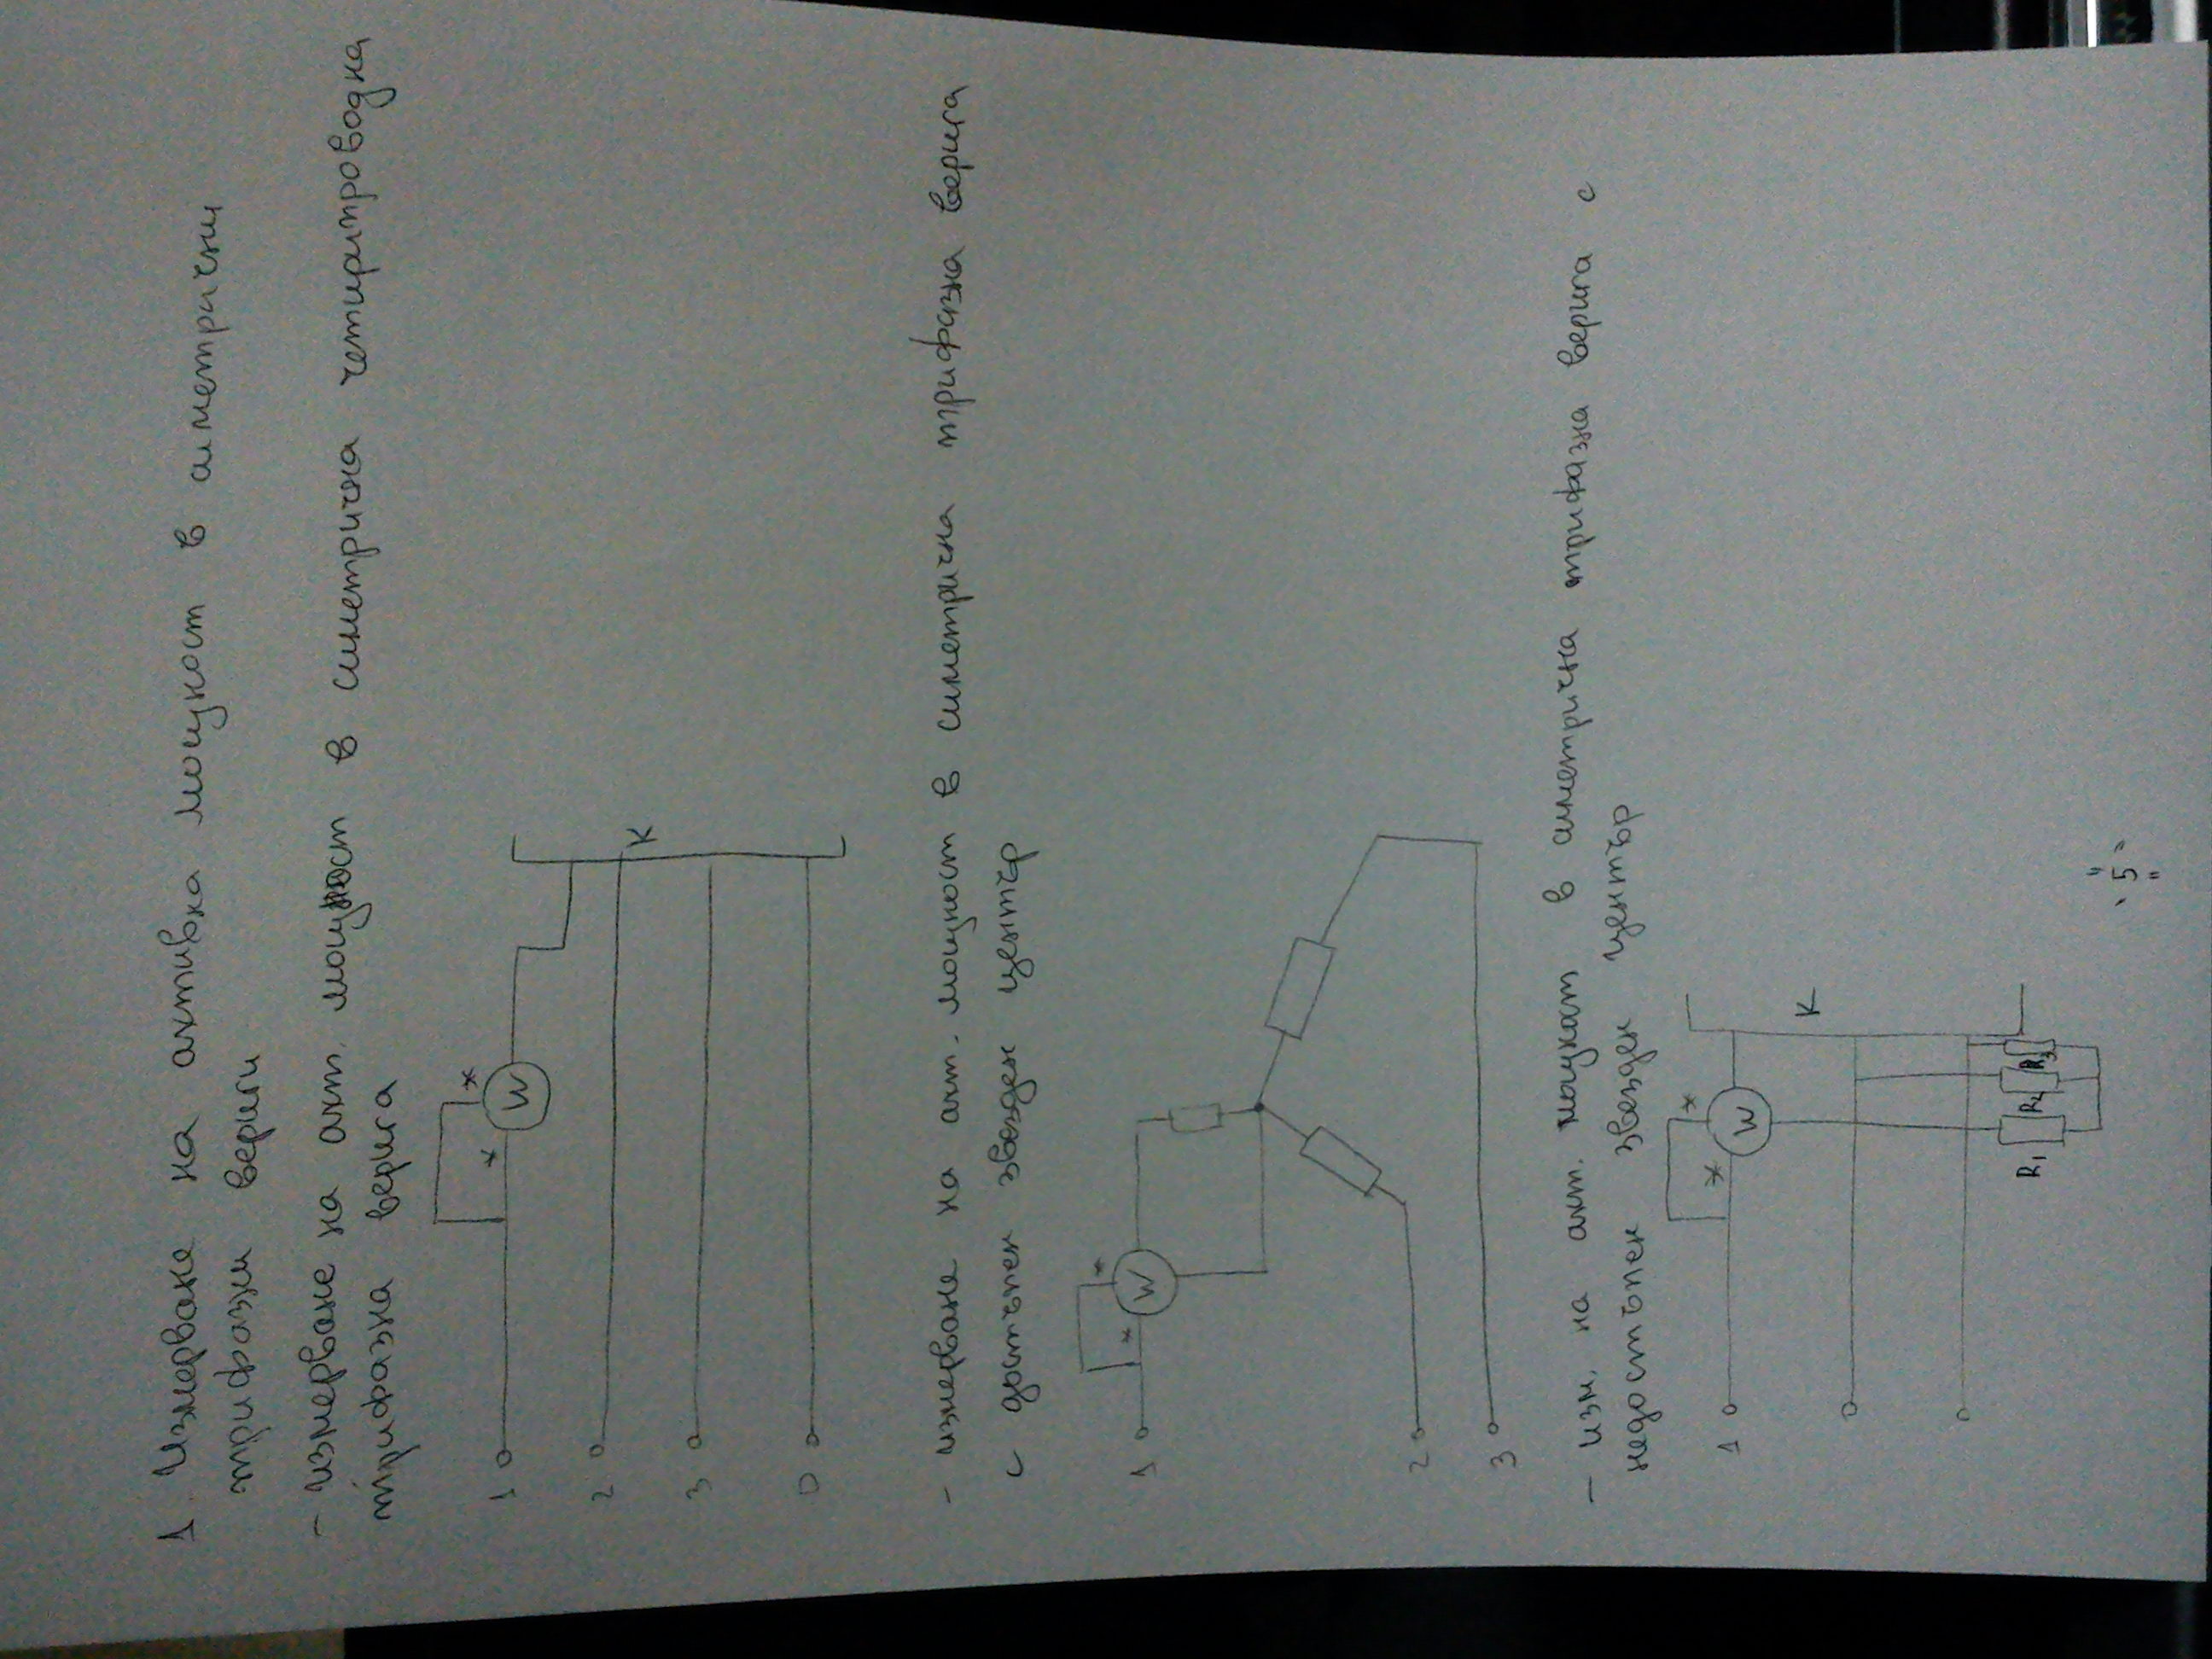 1. Измерване на активна мощност в симетрични
трифазни вериги
- измерване на акт. мощност в симетрична четирипроводна
трифазна верига
1
* *
W
2
3
0
K
- измерване на акт. мощност в симетрична трифазна верига
с достъпен звезден център
1
* *
W
2
3
- изм. на акт. мощност в симетрична трифазна верига с
недостъпен звезден център
1
* *
W
K
R1 R2 R3
"5"